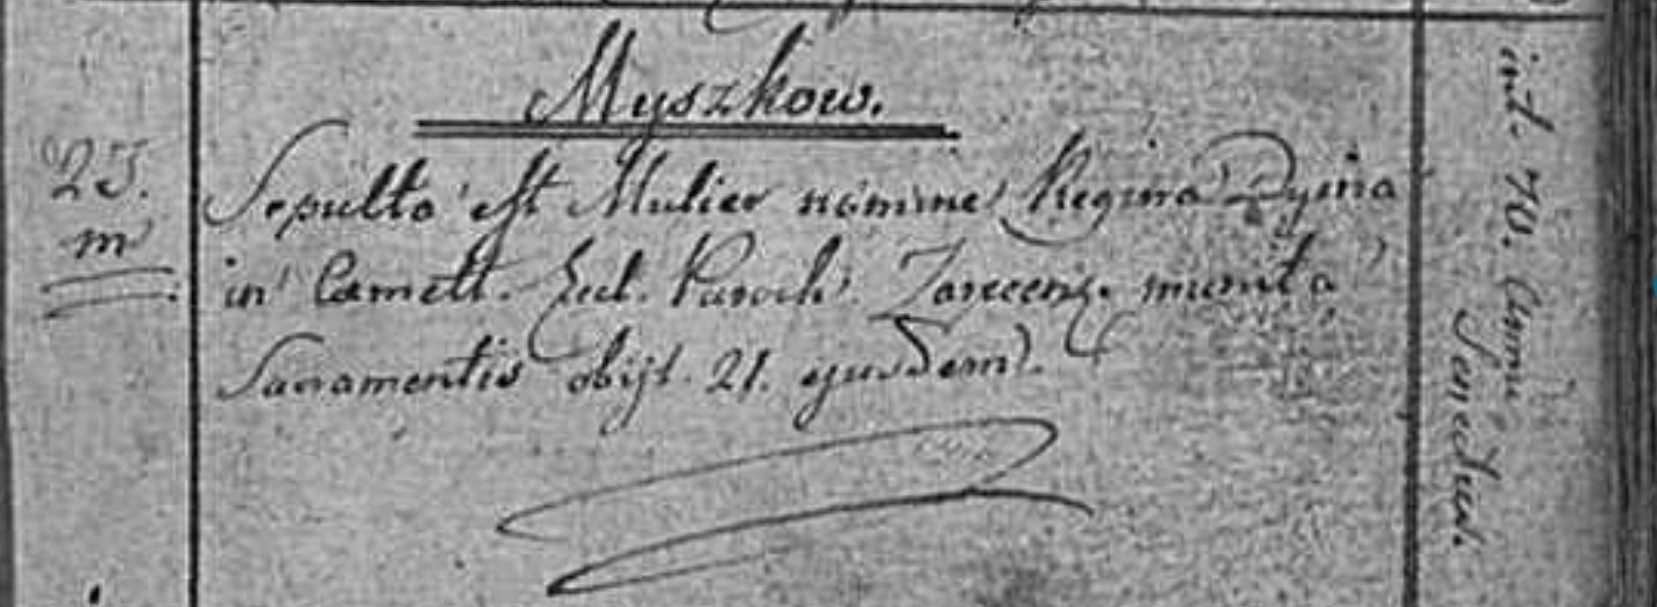 Myszkow.
23.
m
Sepulta est Mulier nomine Regina Dyina
in Cæmett. Eccl. Paroch. Zarecens. munita
Sacramentis obijt 21. ejusdem.
int. 70. Annu
Senectus.